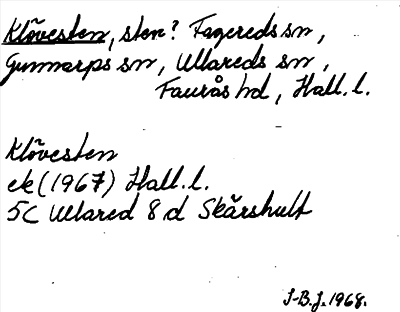 Klövesten, sten? Fagereds sn,
Gunnarps sn, Ullareds sn,
Faurås hd, Hall. l.
Klövesten
ek (1967) Hall. l.
5C Ullared 8 d Skärshult
J-B.J. 1968.